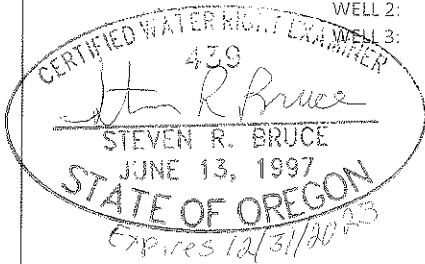 WELL 2:
WELL 3:
CERTIFIED WATER RIGHT EXAMINER
439
Steven R Bruce
STEVEN R. BRUCE
JUNE 13, 1997
STATE OF OREGON
Expires 12/31/2023